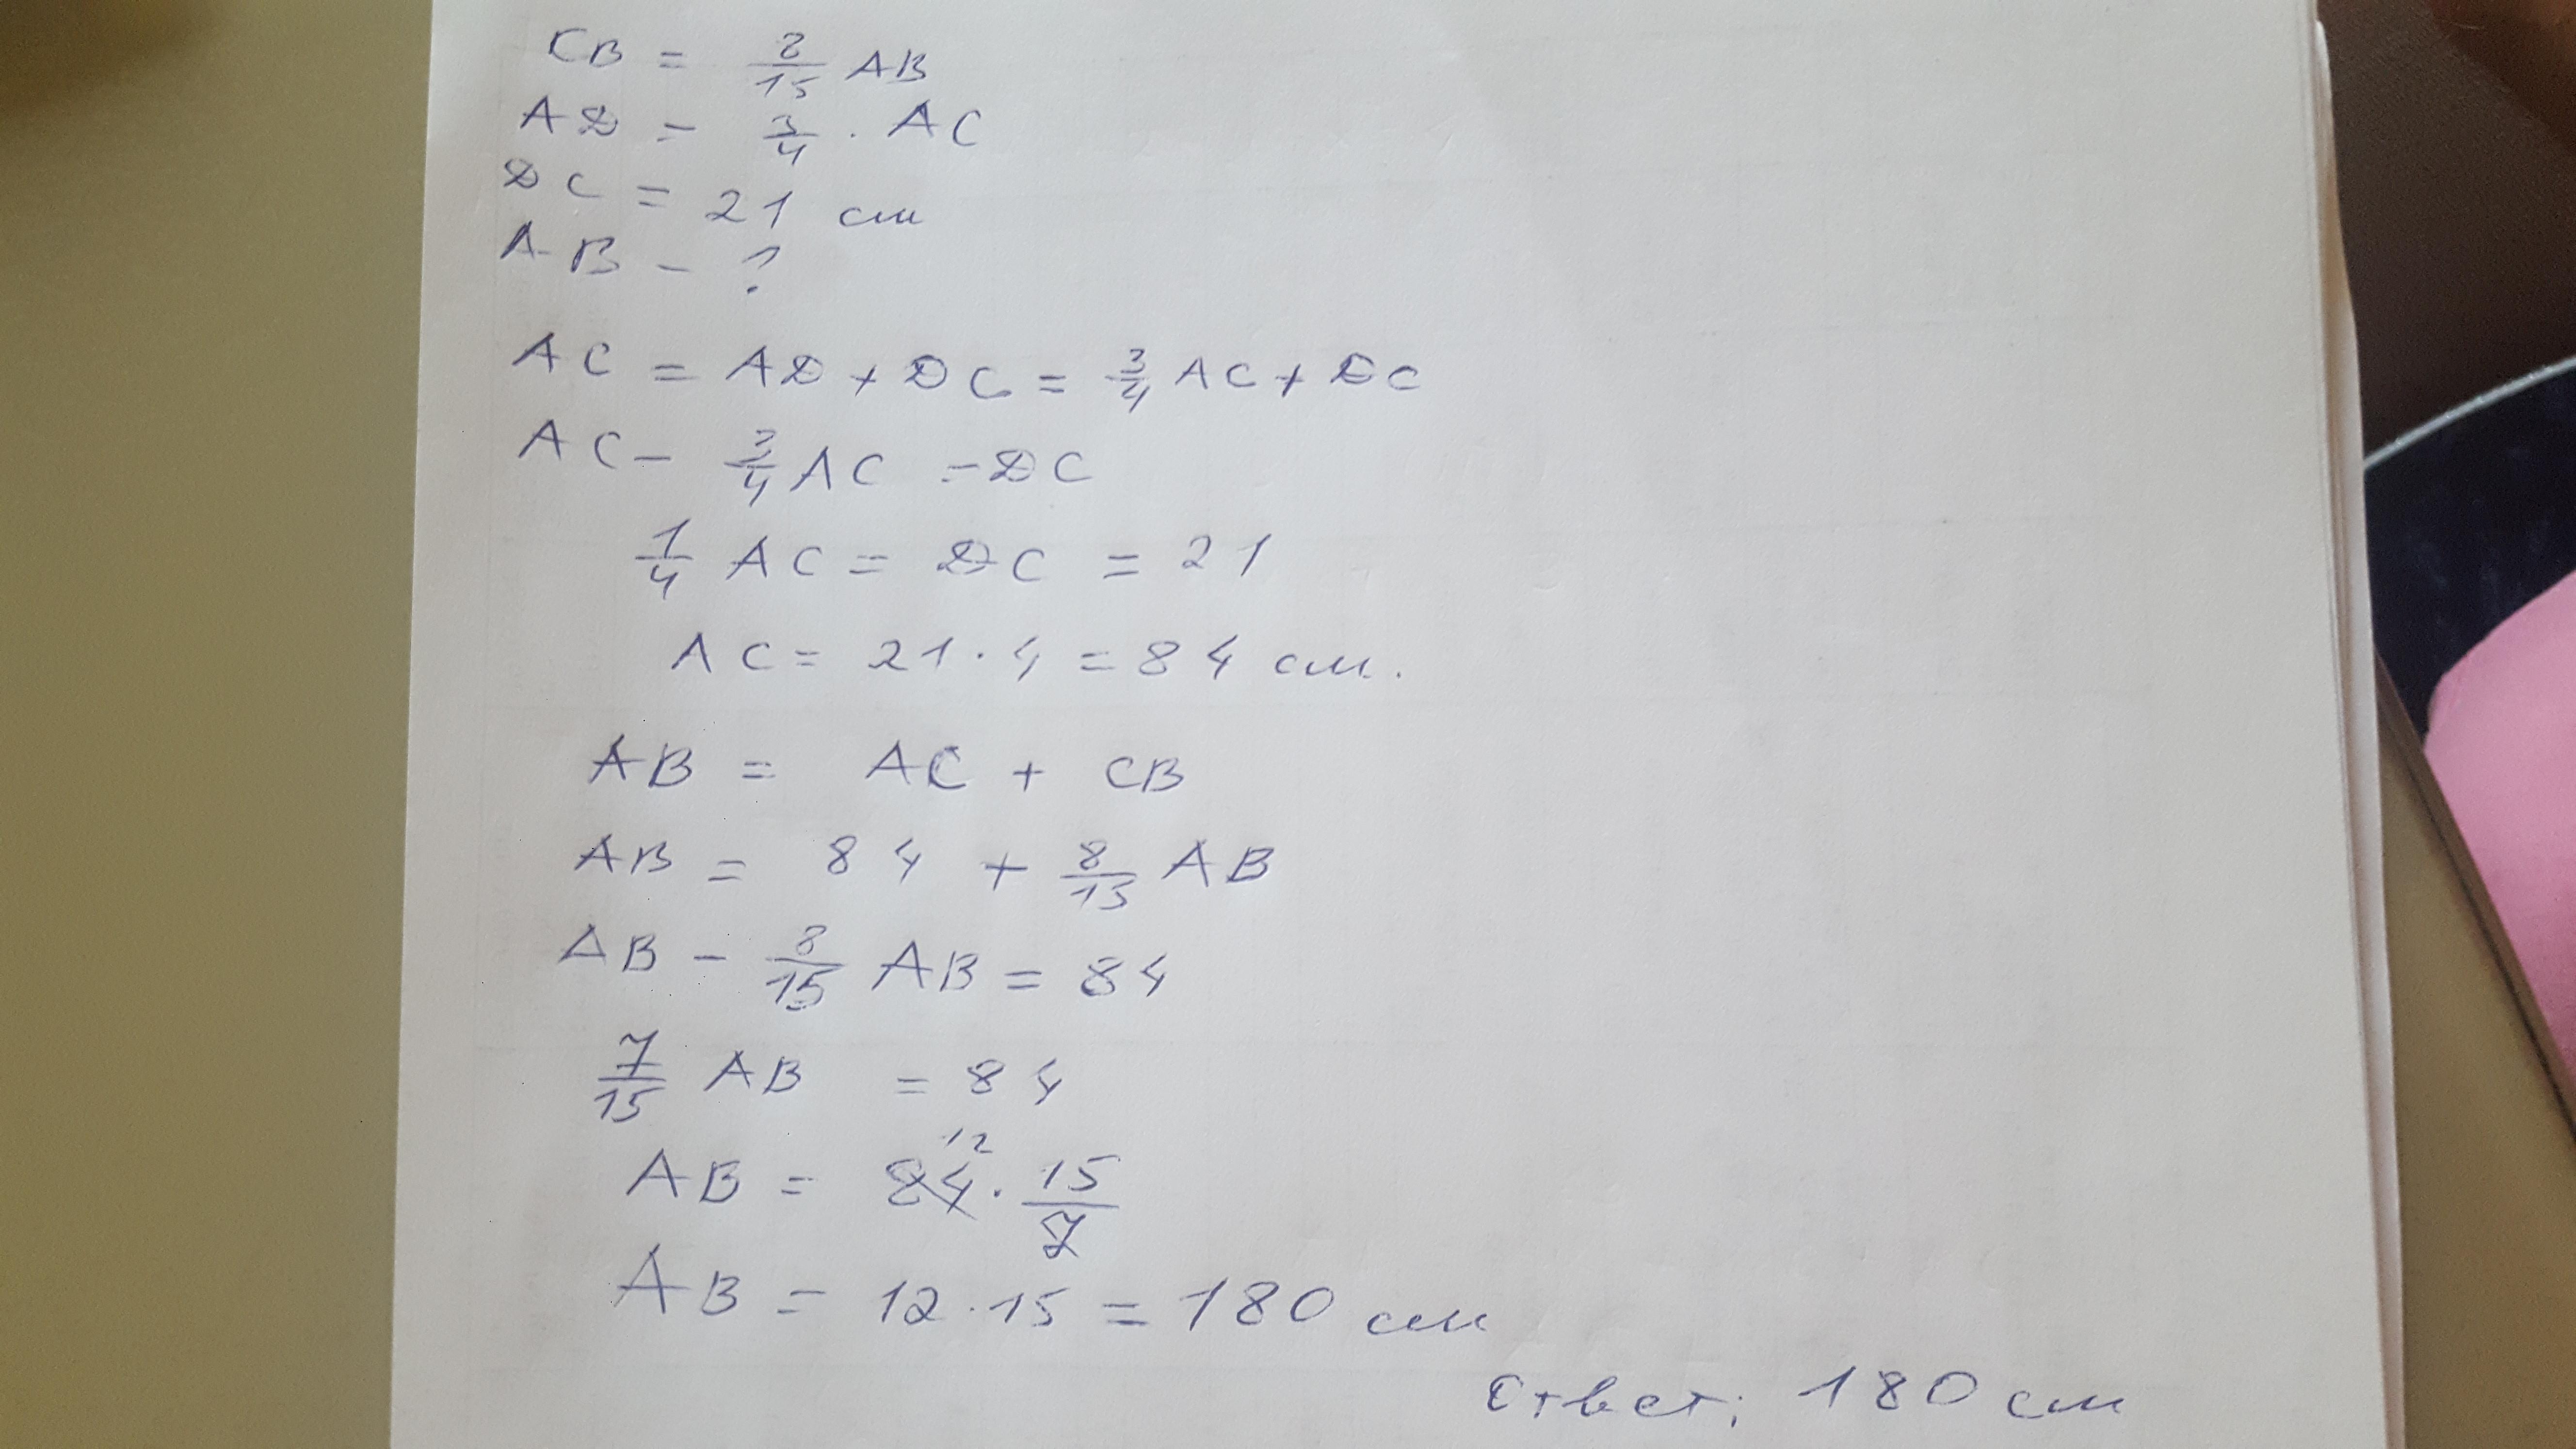 CB = 8/15 AB
AD = 3/4 · AC
DC = 21 см
AB - ?
AC = AD + DC = 3/4 AC + DC
AC - 3/4 AC = DC
1/4 AC = DC = 21
AC = 21 · 4 = 84 см.
AB = AC + CB
AB = 84 + 8/15 AB
AB - 8/15 AB = 84
7/15 AB = 84
12
AB = 84 · 15/7
AB = 12 · 15 = 180 см
Ответ: 180 см